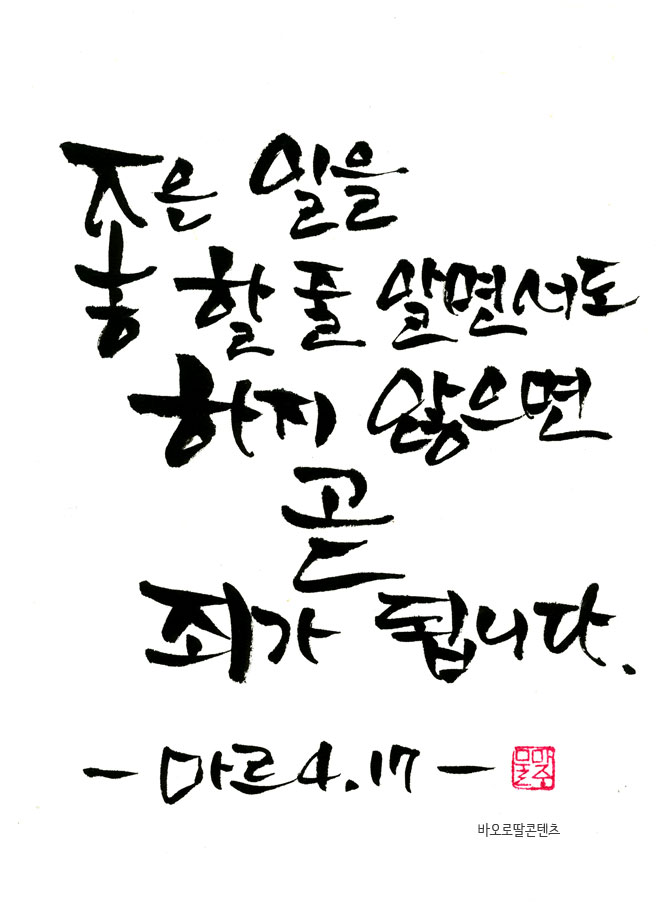 좋은 일을
할 줄 알면서도
하지 않으면
곧
죄가 됩니다.
- 마르 4.17 -
바오로딸콘텐츠